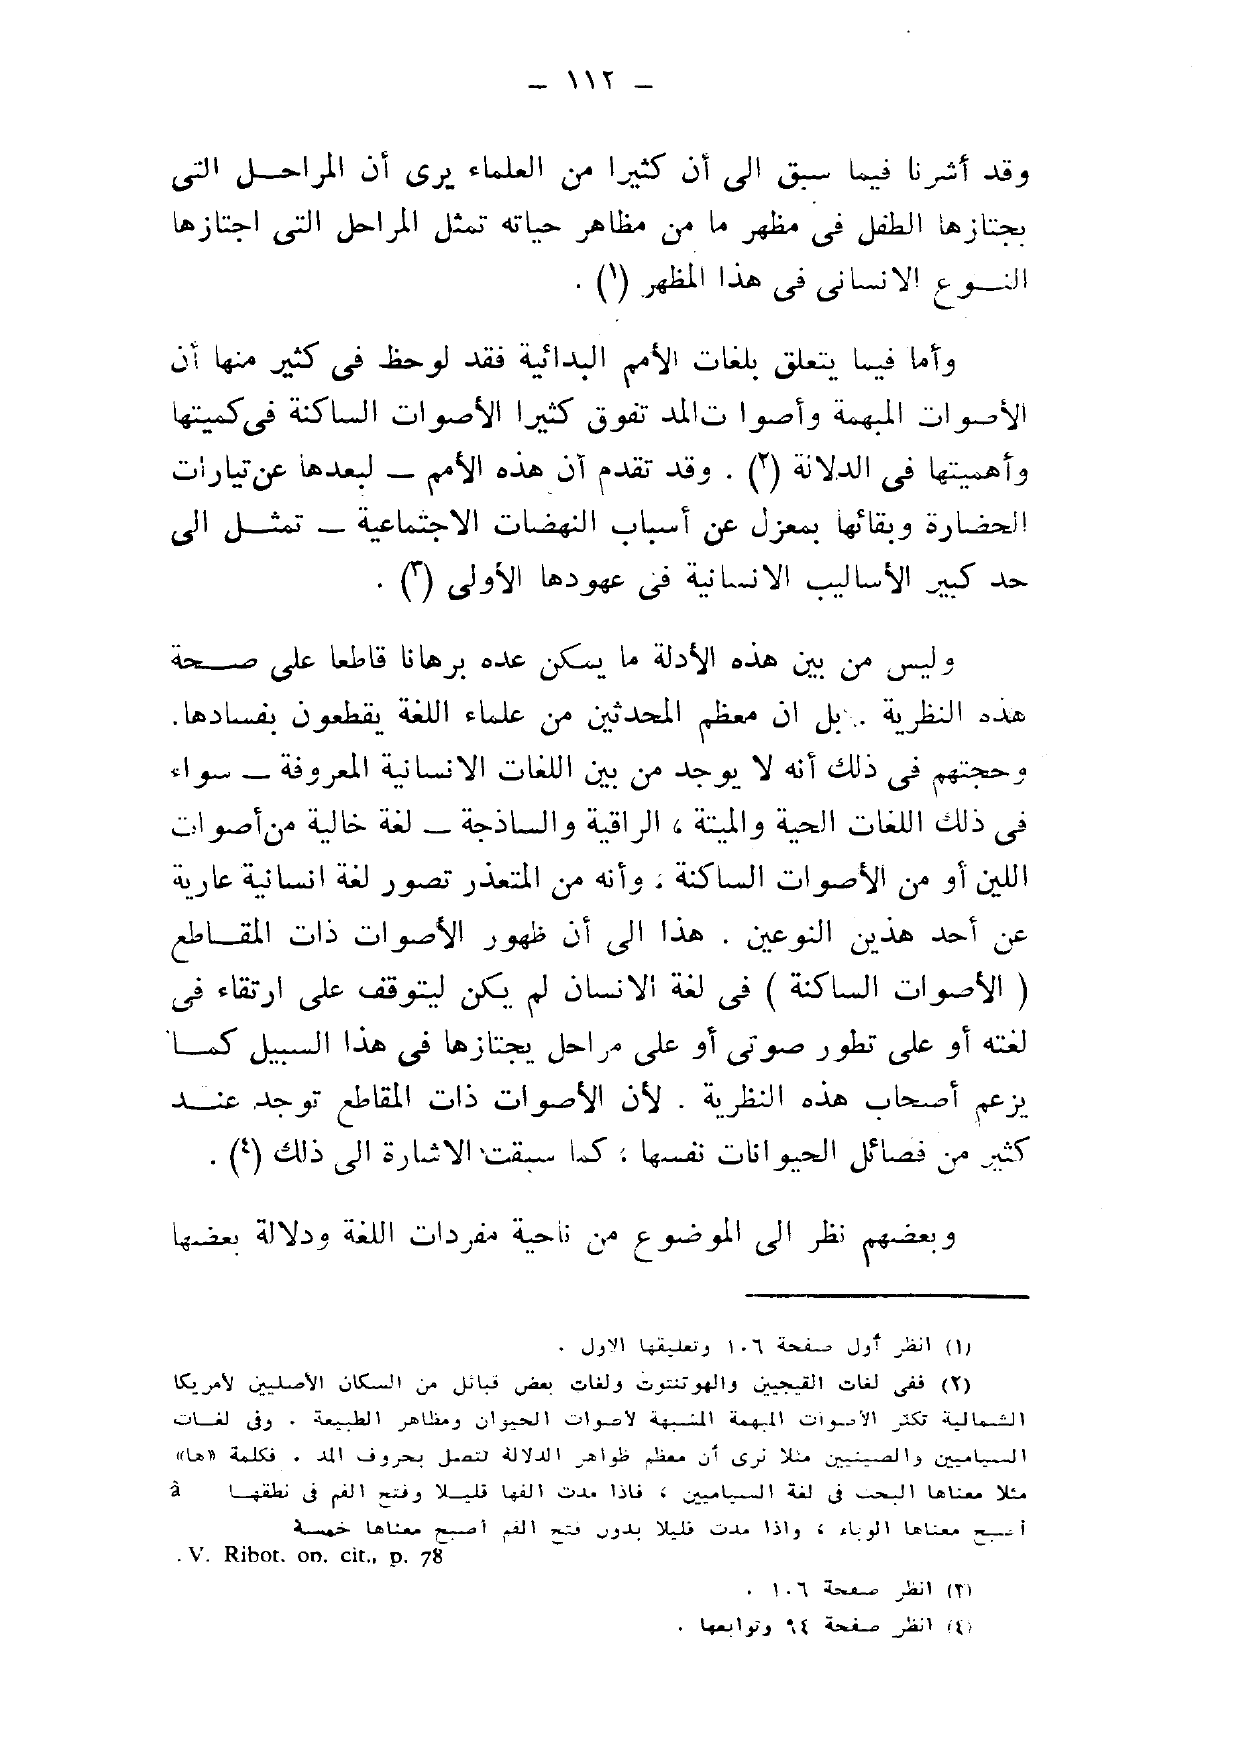 — ١١٢ —
وقد أشرنا فيما سبق الى أن كثيرا من العلماء يرى أن المراحل التى
يجتازها الطفل فى مظهر ما من مظاهر حياته تمثل المراحل التى اجتازها
النوع الانسانى فى هذا المظهر (١) .
وأما فيما يتعلق بلغات الأمم البدائية فقد لوحظ فى كثير منها أن
الأصوات المبهمة وأصوا تالمد تفوق كثيرا الأصوات الساكنة فى كميتها
وأهميتها فى الدلالة (٢) . وقد تقدم أن هذه الأمم — لبعدها عن تيارات
الحضارة وبقائها بمعزل عن أسباب النهضات الاجتماعية — تمثل الى
حد كبير الأساليب الانسانية فى عهودها الأولى (٣) .
وليس من بين هذه الأدلة ما يمكن عده برهانا قاطعا على صحة
هذه النظرية . بل ان معظم المحدثين من علماء اللغة يقطعون بفسادها.
وحجتهم فى ذلك أنه لا يوجد من بين اللغات الانسانية المعروفة — سواء
فى ذلك اللغات الحية والميتة ، الراقية والساذجة — لغة خالية من أصوات
اللين أو من الأصوات الساكنة ؛ وأنه من المتعذر تصور لغة انسانية عارية
عن أحد هذين النوعين . هذا الى أن ظهور الأصوات ذات المقاطع
( الأصوات الساكنة ) فى لغة الانسان لم يكن ليتوقف على ارتقاء فى
لغته أو على تطور صوتى أو على مراحل يجتازها فى هذا السبيل كما
يزعم أصحاب هذه النظرية . لأن الأصوات ذات المقاطع توجد عند
كثير من فصائل الحيوانات نفسها ؛ كما سبقت الاشارة الى ذلك (٤) .
وبعضهم نظر الى الموضوع من ناحية مفردات اللغة ودلالة بعضها
(١) انظر أول صفحة ١٠٦ وتعليقها الاول .
(٢) ففى لغات الفيجيين والهوتنتوت ولغات بعض قبائل من السكان الأصليين لأمريكا
الشمالية تكثر الأصوات المبهمة المشبهة لأصوات الحيوان ومظاهر الطبيعة . وفى لغات
السياميين والصينيين مثلا نرى أن معظم ظواهر الدلالة تتصل بحروف المد . فكلمة «ها»
مثلا معناها البحث فى لغة السياميين ، فاذا مدت الفها قليلا وفتح الفم فى نطقها à
أصبح معناها الوباء ، واذا مدت قليلا بدون فتح الفم أصبح معناها خمسة
. V. Ribot. op. cit., p. 78
(٣) انظر صفحة ١٠٦ .
(٤) انظر صفحة ٦٤ وتوابعها .